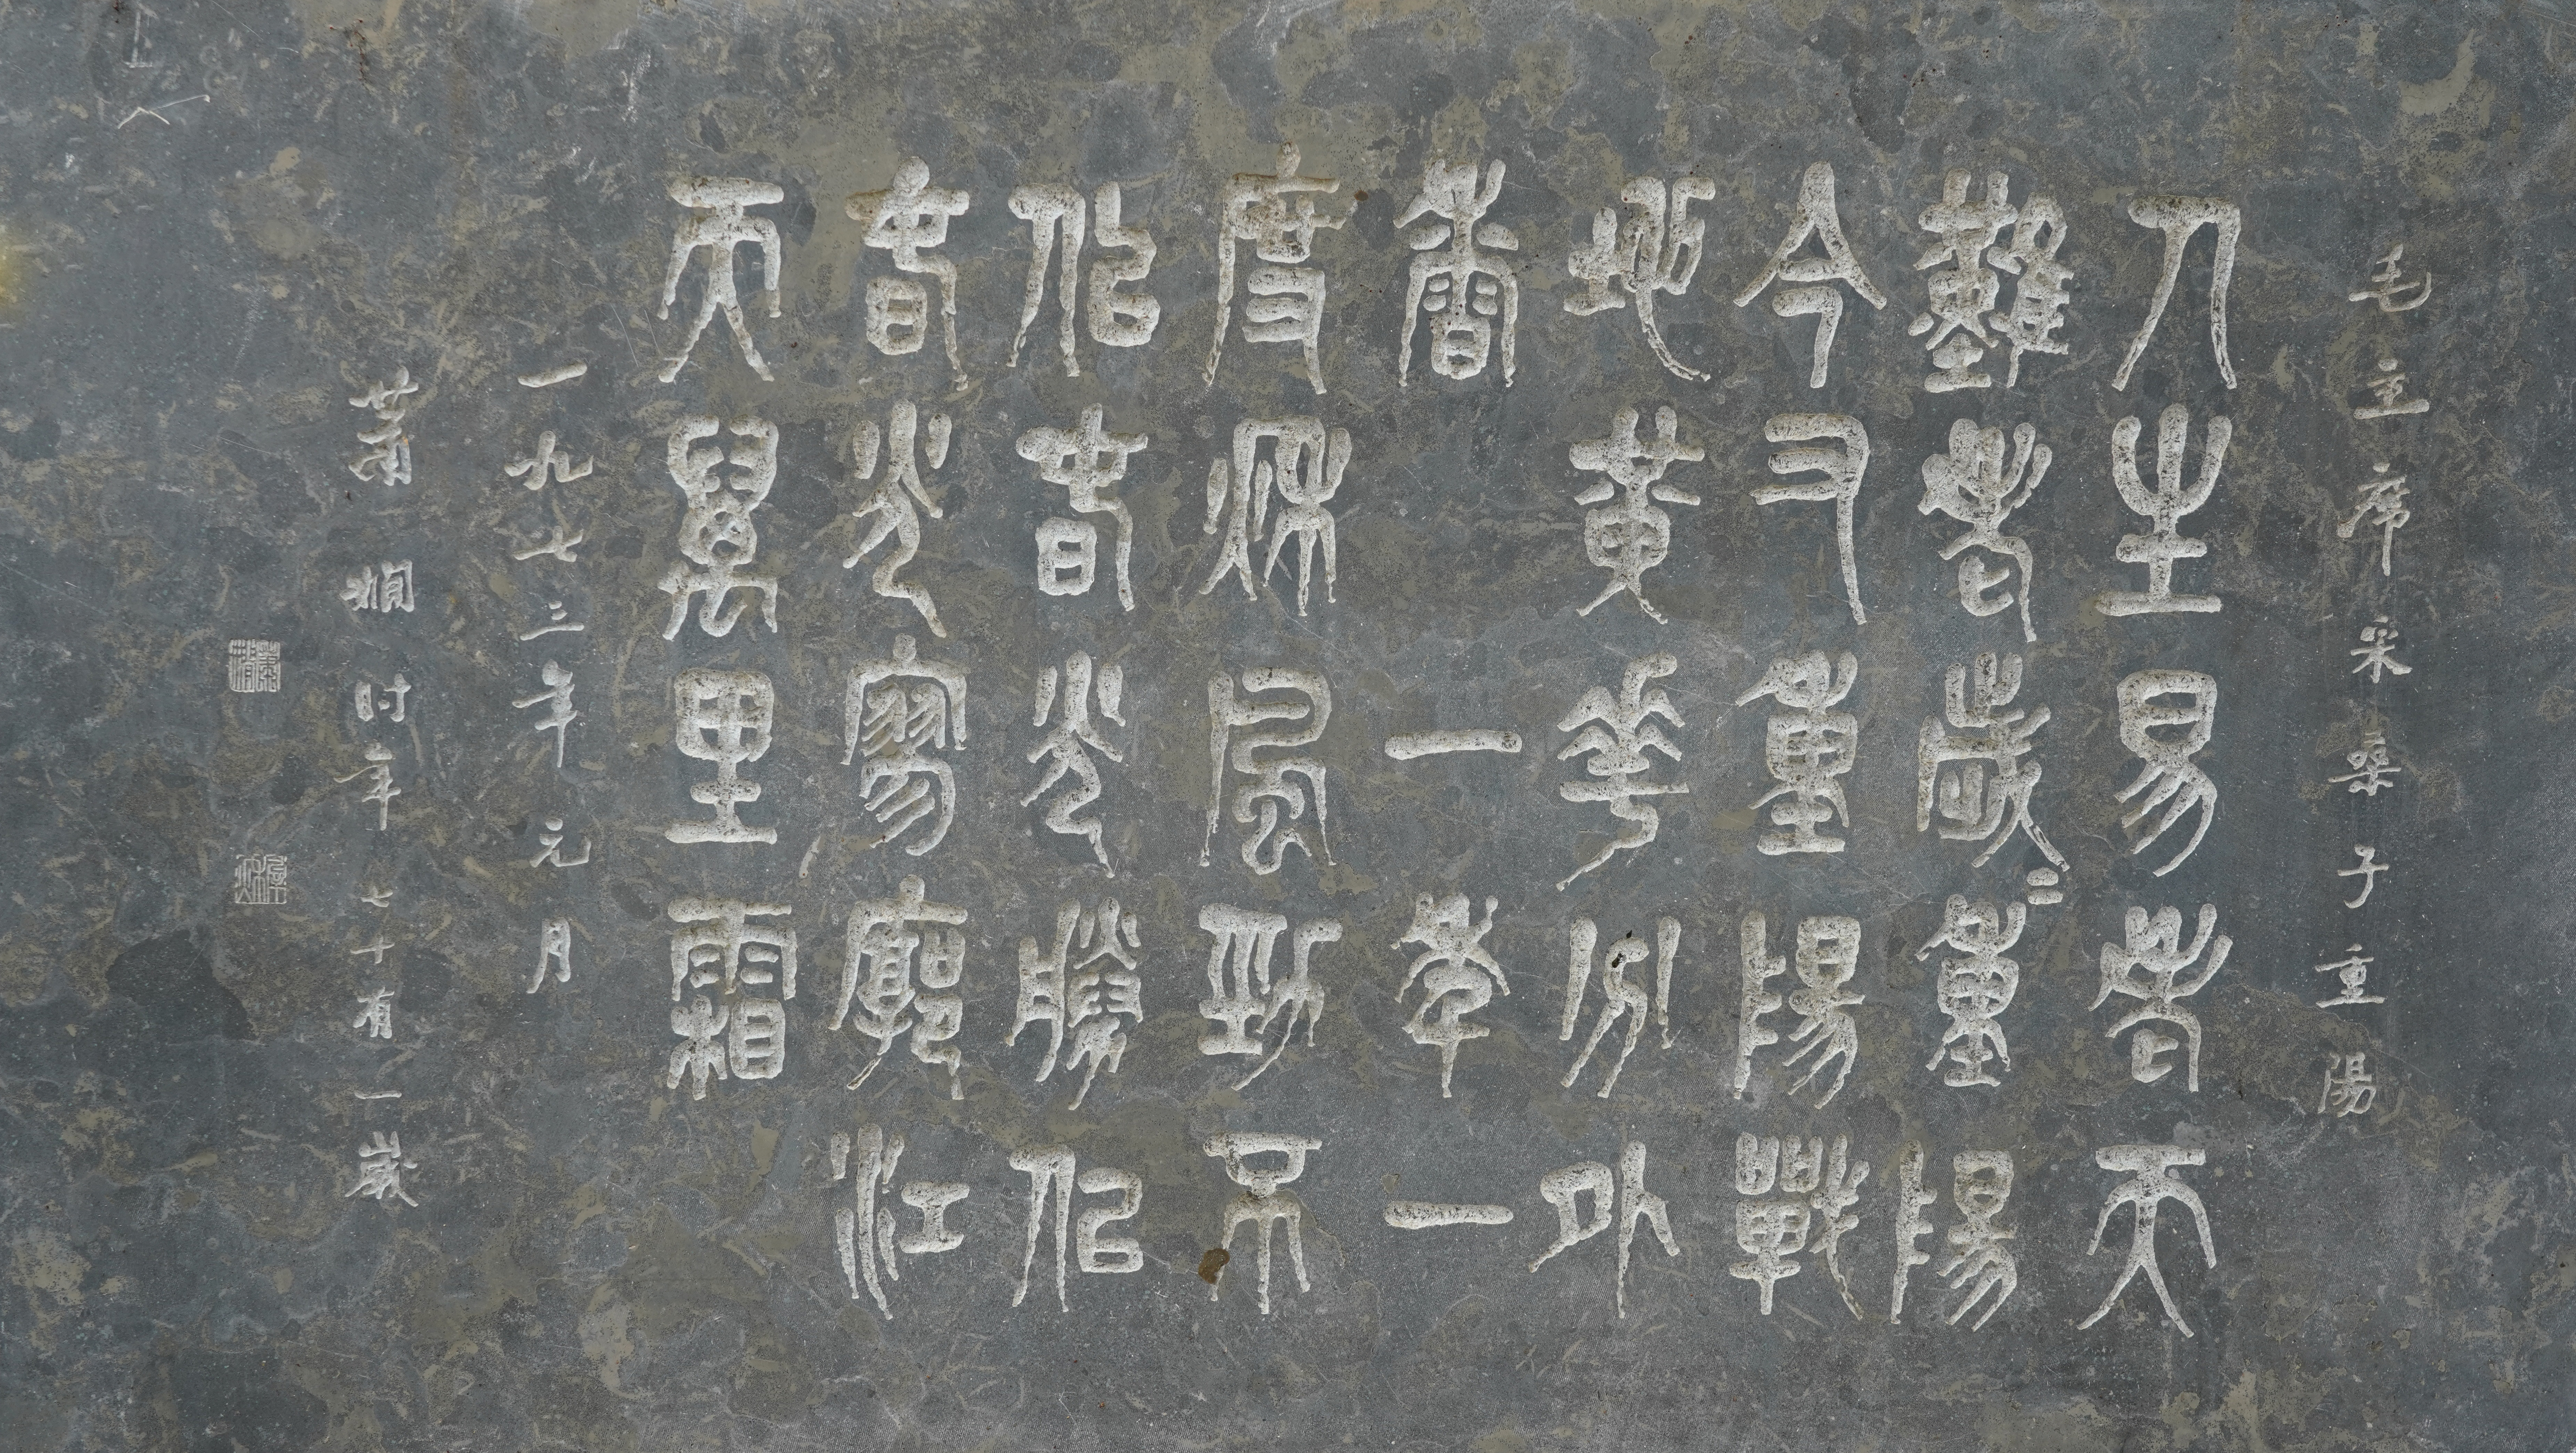 毛主席采桑子重陽
人生易老天
難老歲〻重陽
今又重陽戰
地黃華分外
香一年一
度秋風勁不
似春光勝似
春光寥廓江
天萬里霜
一九七三年元月
蕭嫻时年七十有一歲
蕭嫻